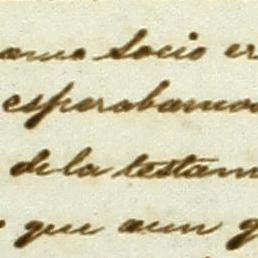 como Socio en
esperabamos
de la testam
que aun g